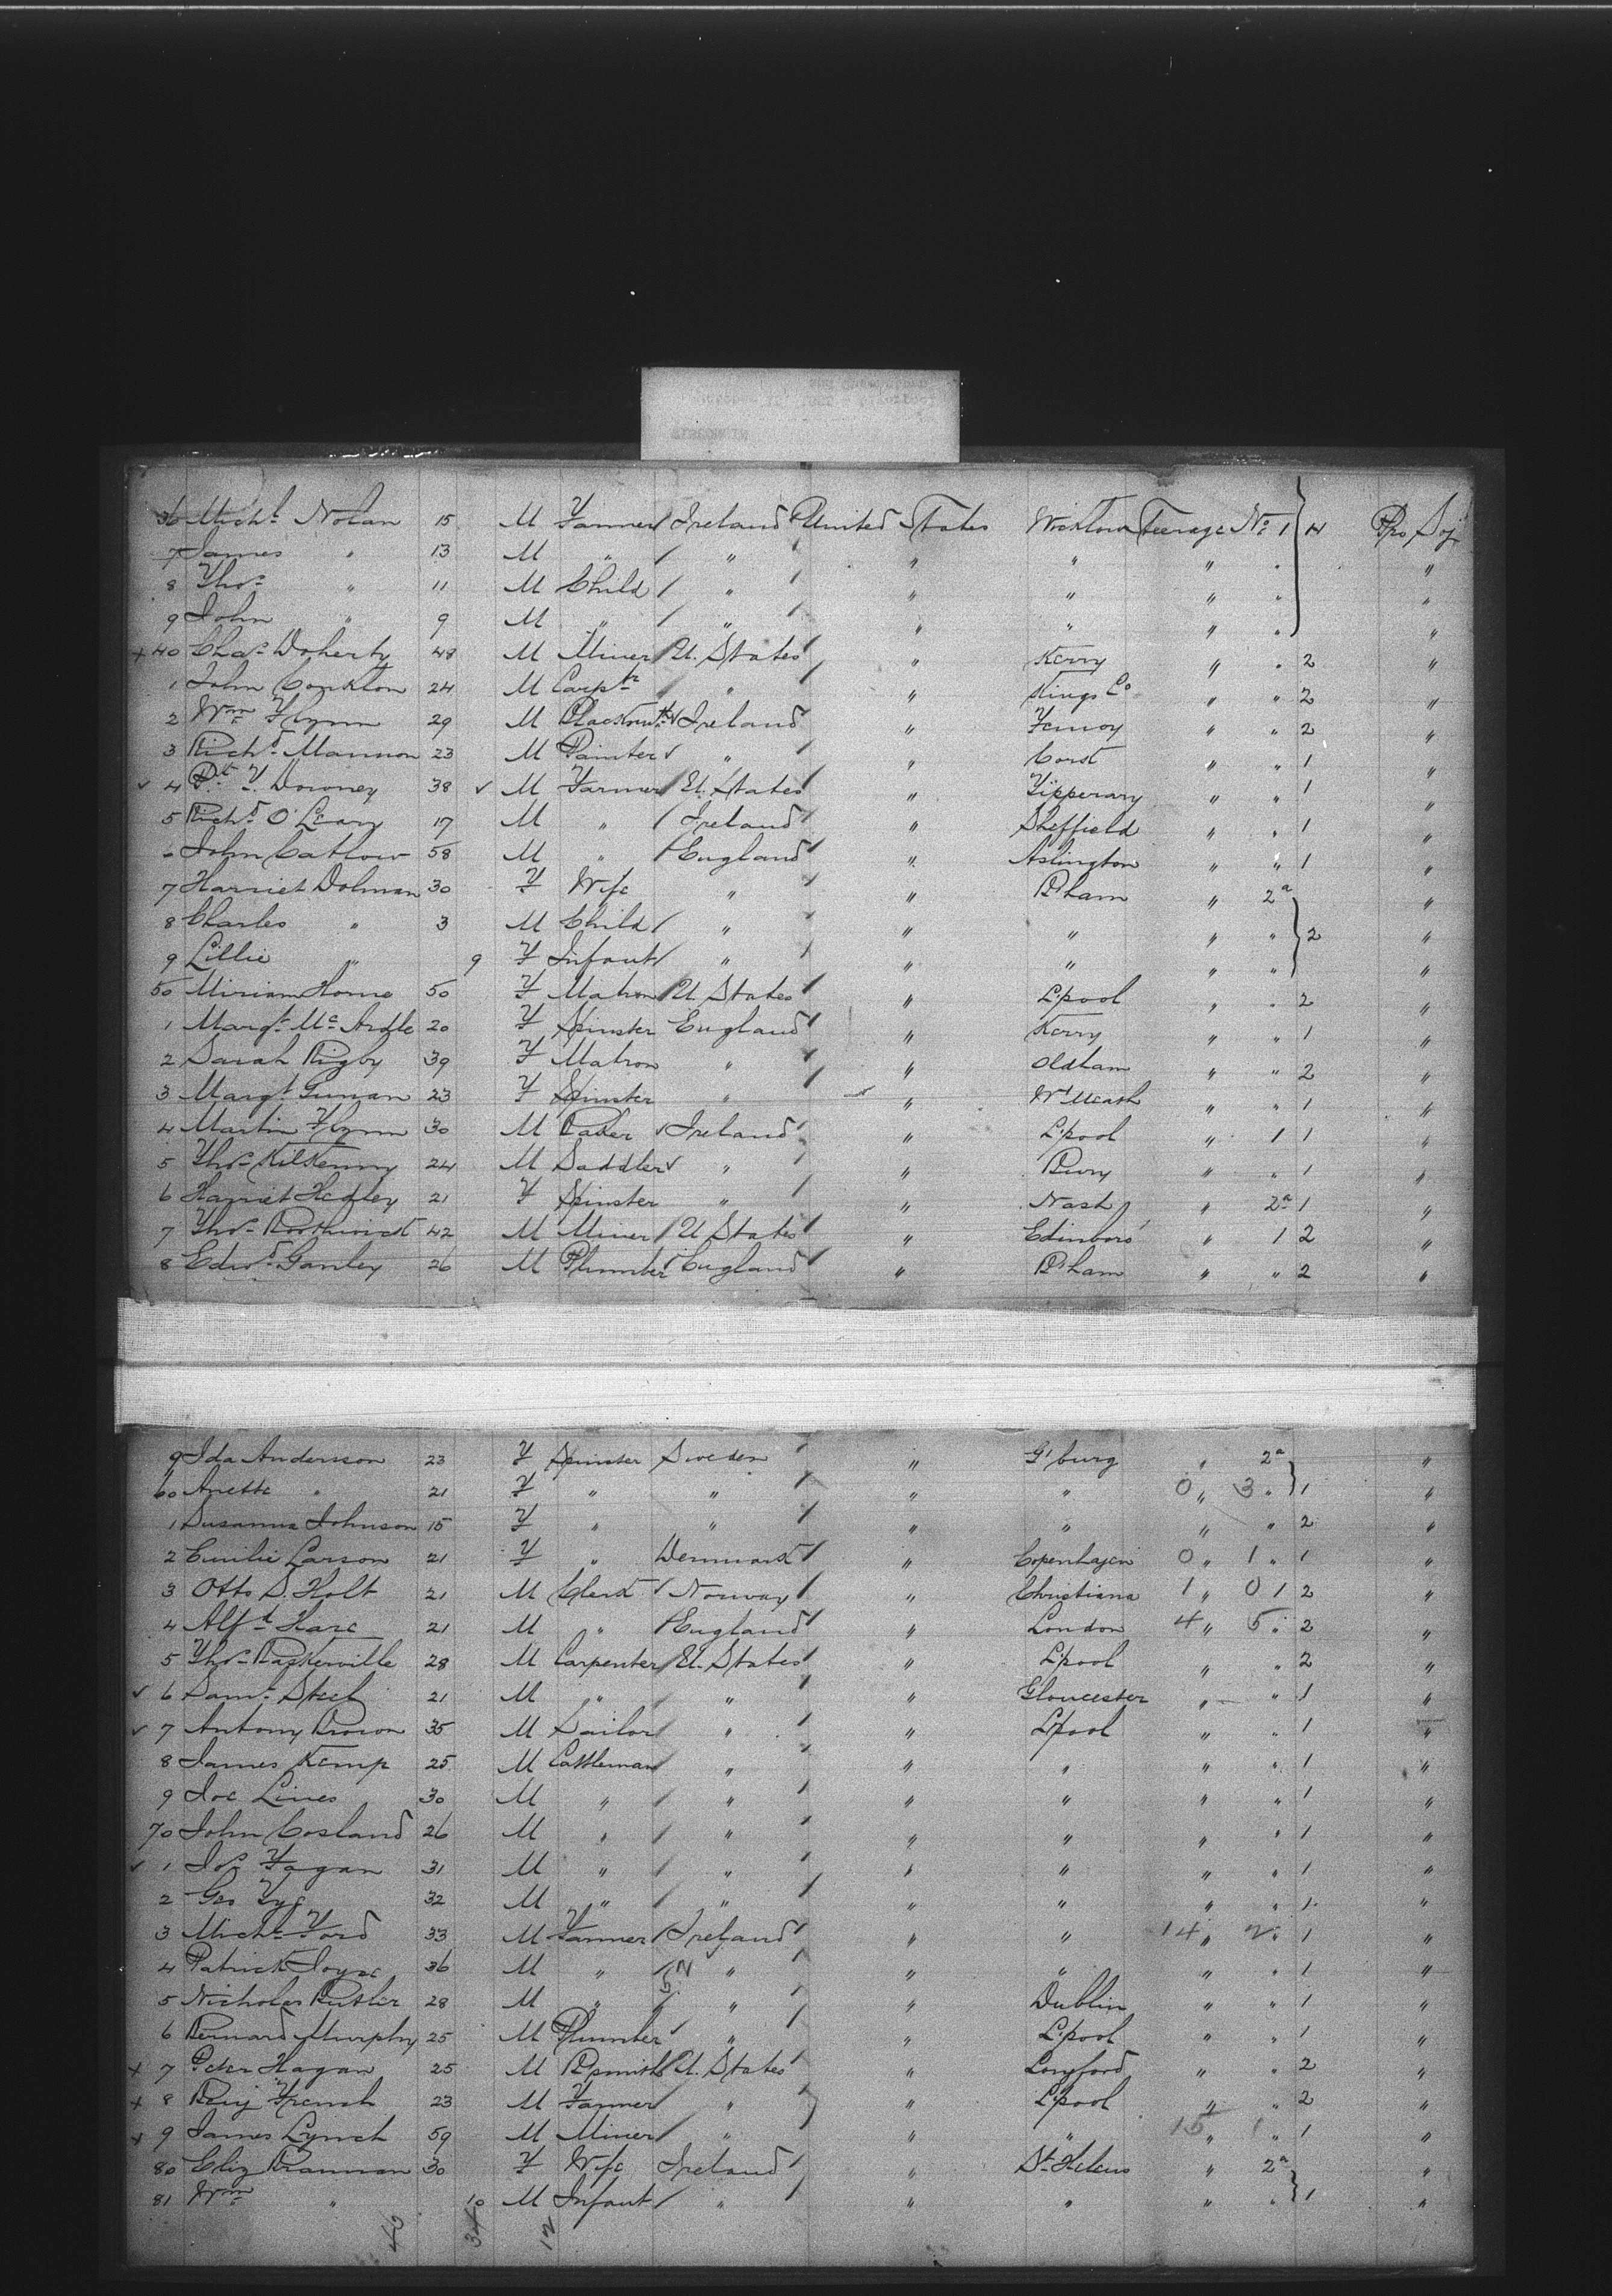 36 Michl. Nolan 15 M Farmer Ireland United States Wicklow Steerage No. 1 4 Pro Soj
7 James " 13 M " " " " " " "
8 Thos. " 11 M Child " " " " " "
9 John " 9 M " " " " " " "
+ 40 Chas. Doherty 48 M Miner U. States " Kerry " " 2 "
1 John Conklon 24 M Carptr " " Kings Co " " 2 "
2 Wm Flynn 29 M Blacksmith Ireland " Fermoy " " 2 "
3 Richd. Mannion 23 M Painter " " Cork " " 1 "
✓ 4 Pk. F. Downey 38 ✓ M Farmer U. States " Tipperary " " 1 "
5 Richd. O'Leary 17 M " Ireland " Sheffield " " 1 "
6 John Catlow 58 M " England " Aslington " " 1 "
7 Harriet Dolman 30 F Wife " " B'ham " 2a "
8 Charles " 3 M Child " " " " " 2 "
9 Lillie " 9 F Infant " " " " " "
50 Miriam Horne 50 F Matron U States " L.pool " " 2 "
1 Margt. McArdle 20 F Spinster England " Kerry " " 1 "
2 Sarah Rigby 39 F Matron " " Oldham " " 2 "
3 Margt. 23 F Spinster " " Wt Meath " " 1 "
4 Martin Flynn 30 M Ireland " L.pool " 1 1 "
5 Thos. Kilkenny 24 M Saddler " " Bury " " 1 "
6 Harriet Hedley 21 F Spinster " " Nash " 2a 1 "
7 Thos. Borthwick 42 M Miner U States " Edinboro' " 1 2 "
8 Edwd. Ganley 26 M Plumber England " B'ham " " 2 "
9 Ida Anderson 23 F Spinster Sweden " G'burg " 2a "
60 Anetta " 21 F " " " " 0 " 3 " 1 "
1 Susanna Johnson 15 F " " " " " " 2 "
2 Emilie Larson 21 F " Denmark " Copenhagen 0 " 1 " 1 "
3 Otto S. Holt 21 M Clerk Norway " Christiana 1 " 0 1 2 "
4 Alfd. Hare 21 M " England " London 4 " 5 " 2 "
5 Thos. Baskerville 28 M Carpenter U. States " L.pool " " 2 "
✓ 6 Saml. Steel 21 M " " " Gloucester " " 1 "
✓ 7 Antony Brown 35 M Sailor " " L.pool " " 1 "
8 James Kemp 25 M Cattleman " " " " " 1 "
9 Joe Lines 30 M " " " " " " 1 "
70 John Cosland 26 M " " " " " " 1 "
✓ 1 Jos. Fagan 31 M " " " " " " 1 "
2 Geo 32 M " " " " " " 1 "
3 Michl. Ford 33 M Farmer Ireland " " 14 " 2 " 1 "
4 Patrick Joyce 36 M " " " " " " 1 "
5 Nicholas Butler 28 M " " " Dublin " " 1 "
6 Bernard Murphy 25 M Plumber " " L.pool " " 1 "
+ 7 Peter Hagan 25 M Bsmith U. States " Longford " " 2 "
+ 8 Benj French 23 M Farmer " " L.pool " " 2 "
+ 9 James Lynch 59 M Miner " " " 15 " 1 " 1 "
80 Eliz Brannan 30 F Wife Ireland " St. Helens " 2a "
81 Wm " 10 M Infant " " " " " 1 "
40 34 12